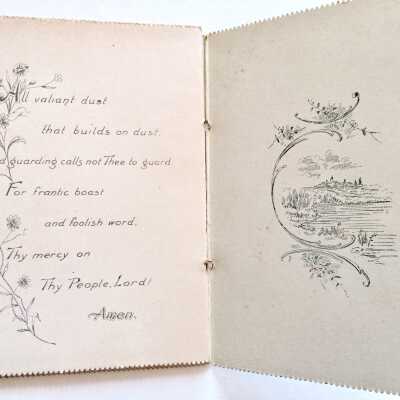 All valiant dust
that builds on dust,
guarding calls not Thee to guard.
For frantic boast
and foolish word,
Thy mercy on
Thy People, Lord!
Amen.